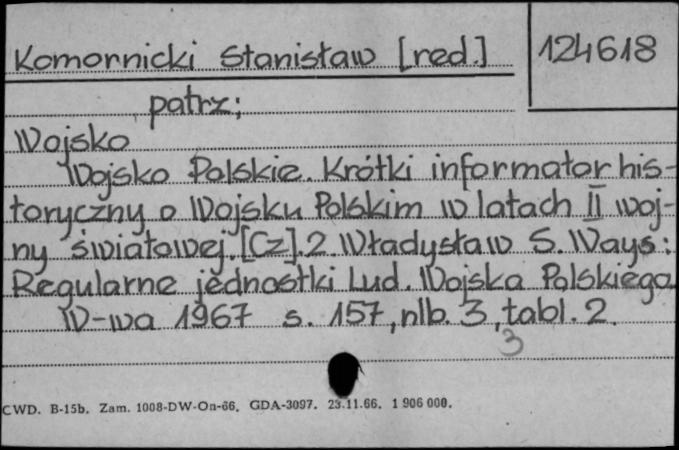 Komornicki Stanisław [red.]
124618
patrz;
Wojsko
Wojsko Polskie. Krótki informator his-
toryczny o Wojsku Polskim w latach II woj-
ny światowej. [Cz]. 2. Władysław S. Ways:
Regularne jednostki Lud. Wojska Polskiego
W-wa 1967 s. 157, nlb. 3, tabl. 2.
3
CWD. B-15b. Zam. 1008-DW-On-66. GDA-3097. 23.11.66. 1 906 000.